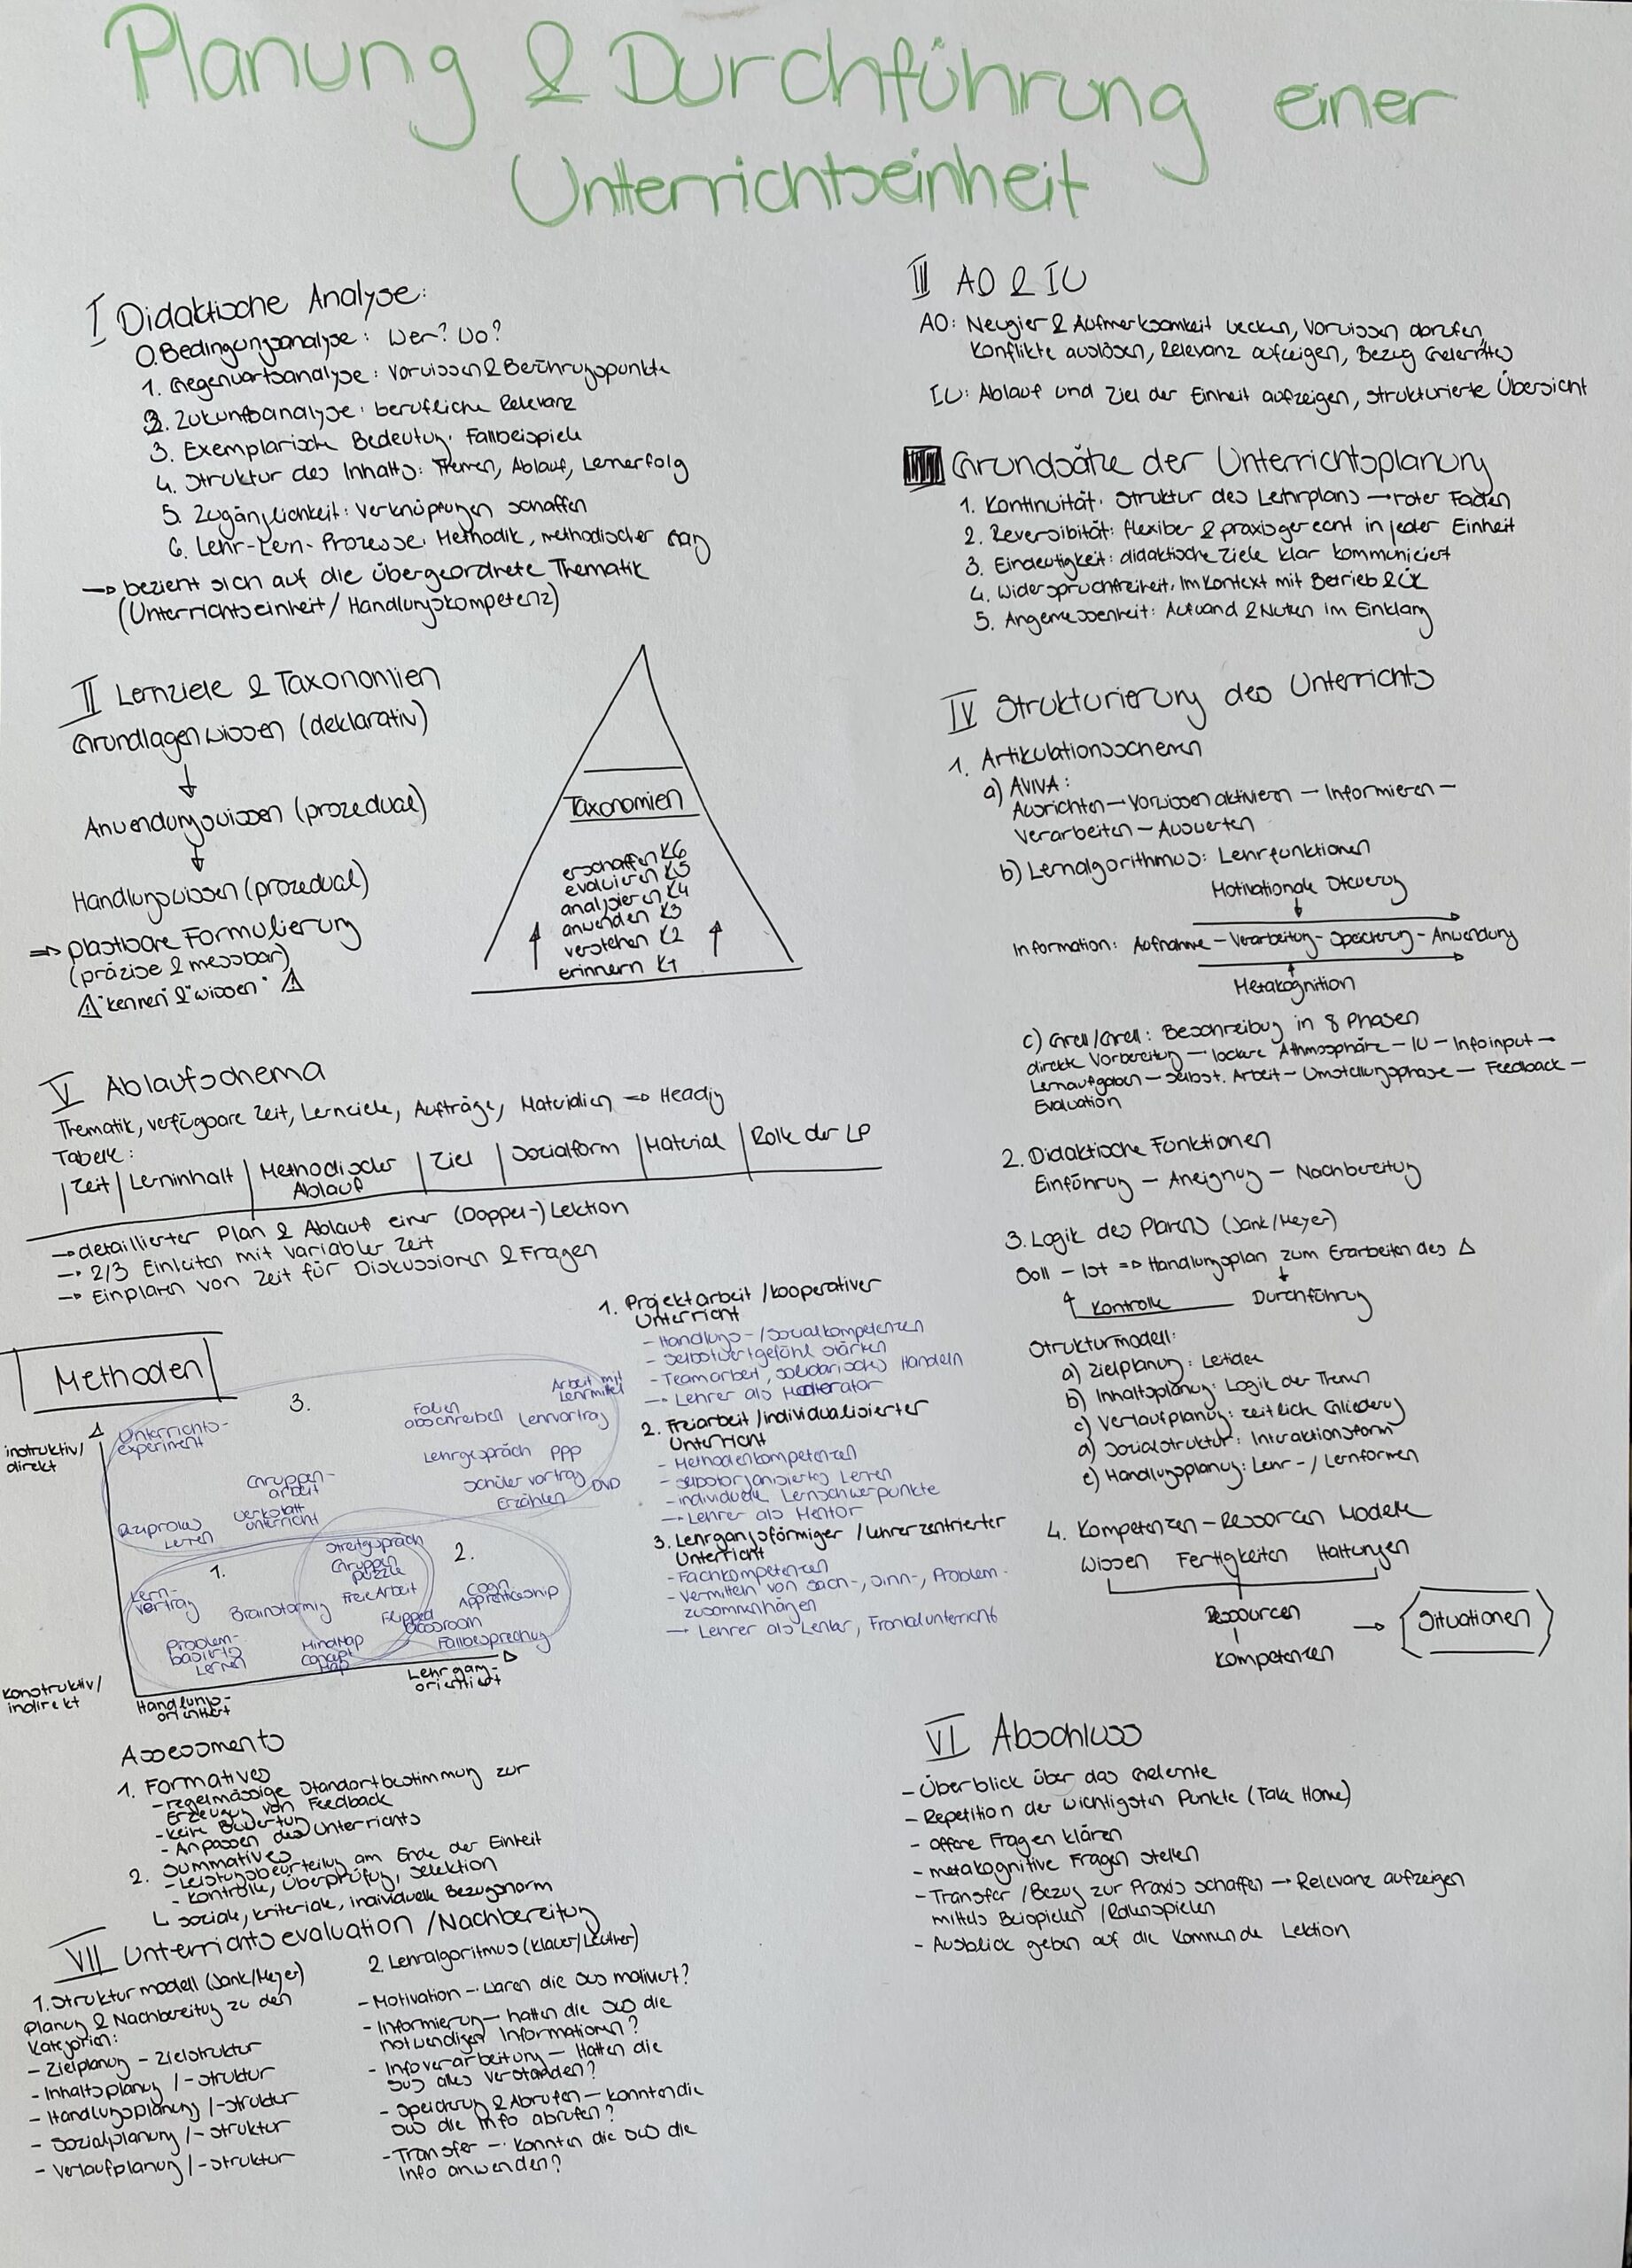 Planung & Durchführung einer
Unterrichtseinheit
I Didaktische Analyse:
0. Bedingungsanalyse: Wer? Wo?
1. Gegenwartsanalyse: Vorwissen & Berührungspunkte
2. Zukunftsanalyse: berufliche Relevanz
3. Exemplarische Bedeutung: Fallbeispiele
4. Struktur des Inhalts: Themen, Ablauf, Lernerfolg
5. Zugänglichkeit: Verknüpfungen schaffen
6. Lehr-Lern-Prozesse: Methodik, methodischer Gang
→ bezieht sich auf die übergeordnete Thematik
(Unterrichtseinheit / Handlungskompetenz)
II Lernziele & Taxonomien
Grundlagenwissen (deklarativ)
↓
Anwendungswissen (prozedual)
↓
Handlungswissen (prozedual)
⇒ plastbare Formulierung
(präzise & messbar)
⚠ "kennen" & "wissen" ⚠
Taxonomien
erschaffen K6
evaluieren K5
analysieren K4
anwenden K3
verstehen K2
erinnern K1
V Ablaufschema
Thematik, verfügbare Zeit, Lernziele, Aufträge, Materialien → Heading
Tabelle:
| Zeit | Lerninhalt | Methodischer Ablauf | Ziel | Sozialform | Material | Rolle der LP
→ detaillierter Plan & Ablauf einer (Doppel-) Lektion
→ 2/3 Einheiten mit variabler Zeit
→ Einplanen von Zeit für Diskussionen & Fragen
Methoden
instruktiv/
direkt
konstruktiv/
indirekt
Handlungs-
orientiert
Lehrgang-
orientiert
3.
Unterrichts-
experiment
Folien
abschreiben
Arbeit mit
Lehrmittel
Lehrvortrag
Lehrgespräch
PPP
Schülervortrag
DVD
Erzählen
Gruppen-
arbeit
Werkstatt
unterricht
Reziprokes
Lernen
1.
2.
Streitgespräch
Gruppen
puzzle
Freie Arbeit
Lern-
vertrag
Brainstorming
Cogn.
Apprenticeship
Flipped
Classroom
Fallbesprechung
Problem-
basiertes
Lernen
MindMap
Concept
Map
1. Projektarbeit / kooperativer
Unterricht
- Handlungs-/Sozialkompetenzen
- Selbstwertgefühl stärken
- Teamarbeit, solidarisches Handeln
→ Lehrer als Moderator
2. Freiarbeit / individualisierter
Unterricht
- Methodenkompetenzen
- selbstorganisiertes Lernen
- individuelle Lernschwerpunkte
→ Lehrer als Mentor
3. Lehrgangsförmiger / lehrerzentrierter
Unterricht
- Fachkompetenzen
- Vermitteln von Sach-, Sinn-, Problem-
zusammenhängen
→ Lehrer als Lenker, Frontalunterricht
Assessments
1. Formatives
- regelmässige Standortbestimmung zur
Erzeugung von Feedback
- keine Bewertung
- Anpassen des Unterrichts
2. Summatives
- Leistungsbeurteilung am Ende der Einheit
- Kontrolle, Überprüfung, Selektion
↳ soziale, kriteriale, individuelle Bezugsnorm
VII Unterrichtsevaluation / Nachbereitung
1. Strukturmodell (Jank/Meyer)
Planung & Nachbereitung zu den
Kategorien:
- Zielplanung - Zielstruktur
- Inhaltsplanung /-struktur
- Handlungsplanung /-struktur
- Sozialplanung /-struktur
- Verlaufplanung /-struktur
2. Lehralgoritmus (Klauer/Leutner)
- Motivation → Waren die SuS motiviert?
- Informierung — hatten die SuS die
notwendigen Informationen?
- Infoverarbeitung — Hatten die
SuS alles verstanden?
- Speicherung & Abrufen — konnten die
SuS die Info abrufen?
- Transfer → Konnten die SuS die
Info anwenden?
III AO & IU
AO: Neugier & Aufmerksamkeit wecken, Vorwissen abrufen,
Konflikte auslösen, Relevanz aufzeigen, Bezug Gelerntes
IU: Ablauf und Ziel der Einheit aufzeigen, strukturierte Übersicht
Grundsätze der Unterrichtsplanung
1. Kontinuität: Struktur des Lehrplans → roter Faden
2. Reversibilität: flexibel & praxisgerecht in jeder Einheit
3. Eindeutigkeit: didaktische Ziele klar kommuniziert
4. Widerspruchfreiheit: Im Kontext mit Betrieb & ÜK
5. Angemessenheit: Aufwand & Nutzen im Einklang
IV Strukturierung des Unterrichts
1. Artikulationsschemen
a) AVIVA:
Ausrichten — Vorwissen aktivieren — Informieren —
Verarbeiten — Auswerten
b) Lernalgorithmus: Lehrfunktionen
Motivationale Steuerung
Information: Aufnahme — Verarbeitung — Speicherung — Anwendung
Metakognition
c) Grell/Grell: Beschreibung in 8 Phasen
direkte Vorbereitung — lockere Athmosphäre — IU — Infoinput —
Lernaufgaben — selbst. Arbeit — Umstellungsphase — Feedback —
Evaluation
2. Didaktische Funktionen
Einführung — Aneignung — Nachbereitung
3. Logik des Planens (Jank/Meyer)
Soll — Ist ⇒ Handlungsplan zum Erarbeiten des Δ
Kontrolle
Durchführung
Strukturmodell:
a) Zielplanung: Leitidee
b) Inhaltsplanung: Logik der Themen
c) Verlaufplanung: zeitlich Gliederung
d) Sozialstruktur: Interaktionsform
e) Handlungsplanung: Lehr-/Lernformen
4. Kompetenzen-Ressourcen Modelle
Wissen Fertigkeiten Haltungen
Ressourcen
Kompetenzen
→ Situationen
VI Abschluss
- Überblick über das Gelernte
- Repetition der wichtigsten Punkte (Take Home)
- offene Fragen klären
- metakognitive Fragen stellen
- Transfer / Bezug zur Praxis schaffen → Relevanz aufzeigen
mittels Beispielen / Rollenspielen
- Ausblick geben auf die kommende Lektion